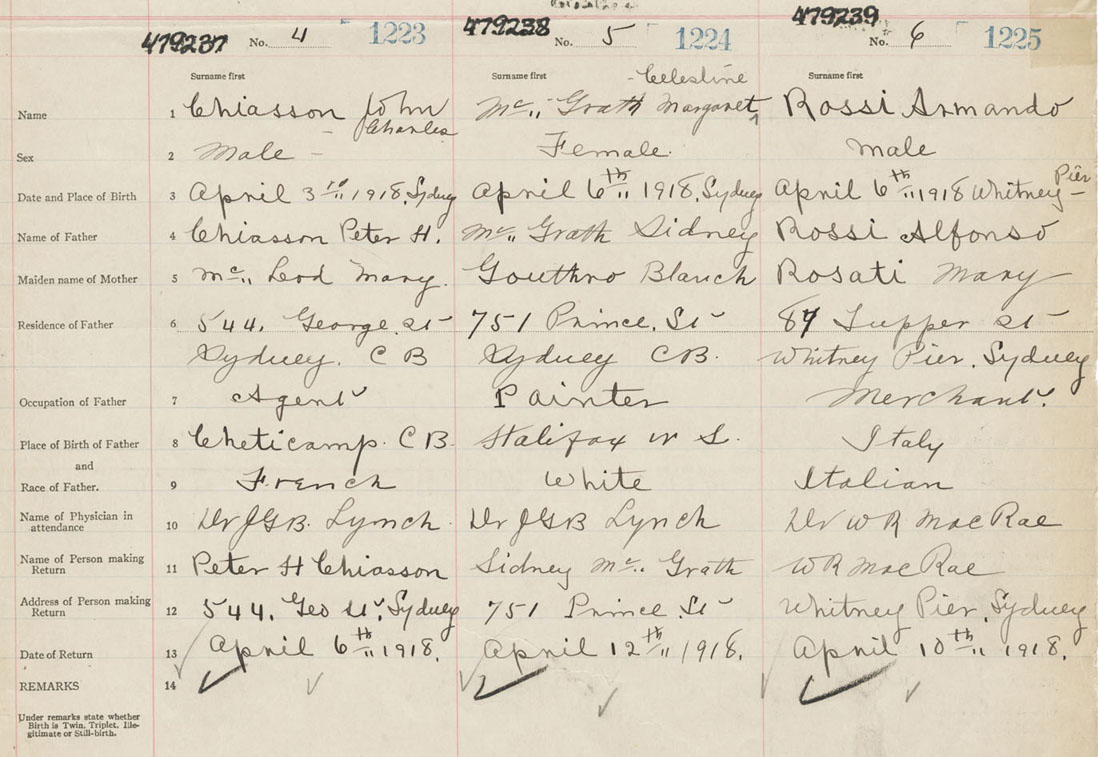 479237 No. 4 1223 479238 No. 5 1224 479239 No. 6 1225
Surname first Surname first Surname first
Name 1 Chiasson John Charles Mc„ Grath Margaret Celestine Rossi Armando
Sex 2 Male Female. Male
Date and Place of Birth 3 April 3rd„ 1918, Sydney April 6th„ 1918, Sydney April 6th„ 1918 Whitney Pier
Name of Father 4 Chiasson Peter H. Mc„ Grath Sidney Rossi Alfonso
Maiden name of Mother 5 Mc„ Leod Mary. Gouthro Blanch Rosati Mary
Residence of Father 6 544, George St 751 Prince, St 87 Tupper St
Sydney. C B Sydney CB. Whitney Pier, Sydney
Occupation of Father 7 Agent Painter Merchant.
Place of Birth of Father 8 Cheticamp. C B. Halifax N S. Italy
and
Race of Father. 9 French White Italian
Name of Physician in attendance 10 Dr JGB. Lynch. Dr JGB Lynch Dr W R MacRae
Name of Person making Return 11 Peter H Chiasson Sidney Mc„ Grath W R MacRae
Address of Person making Return 12 544, Geo St, Sydney 751 Prince St Whitney Pier, Sydney
Date of Return 13 April 6th„ 1918. April 12th„ 1918. April 10th„ 1918.
REMARKS 14
Under remarks state whether
Birth is Twin, Triplet, Ille-
gitimate or Still-birth.